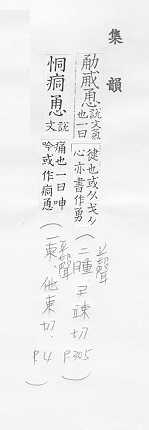 集韻
勈恿說文气
也一曰
健也或从戈从
心亦書作勇
(上聲
二腫 尹竦切 P.305)
恫痌恿說
文
痛也一曰呻
吟或作痌恿
(平聲
一東 他東切 P.4)